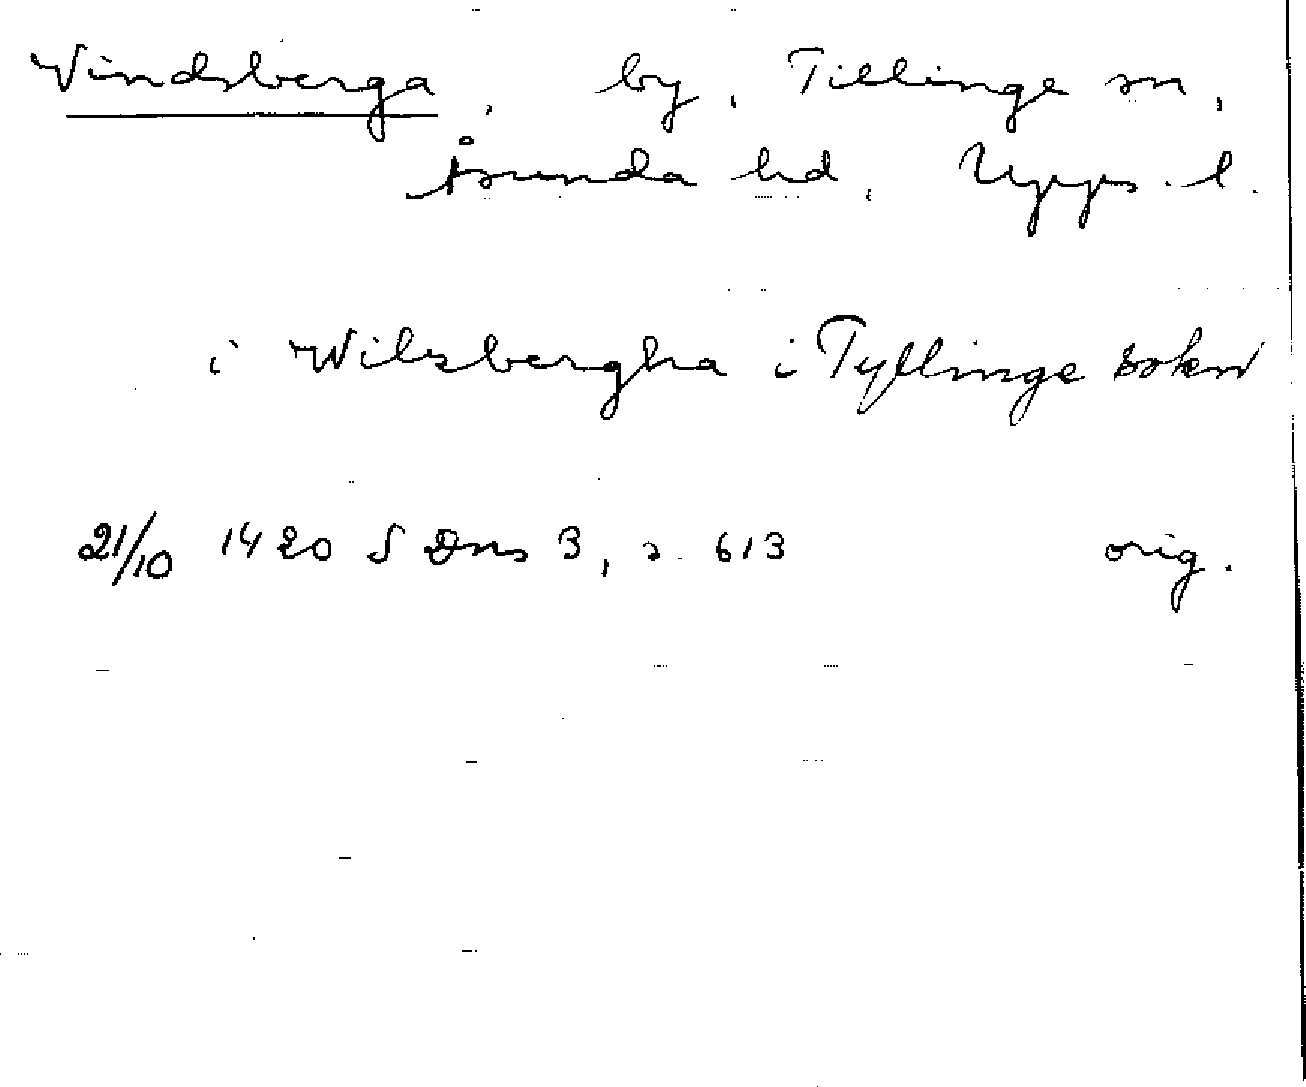 Vindsberga, by, Tillinge sn,
Åsunda hd, Upps. l.
i Wilzbergha i Tyllinge sokn
21/10 1420 S Dns 3, s. 613 orig.